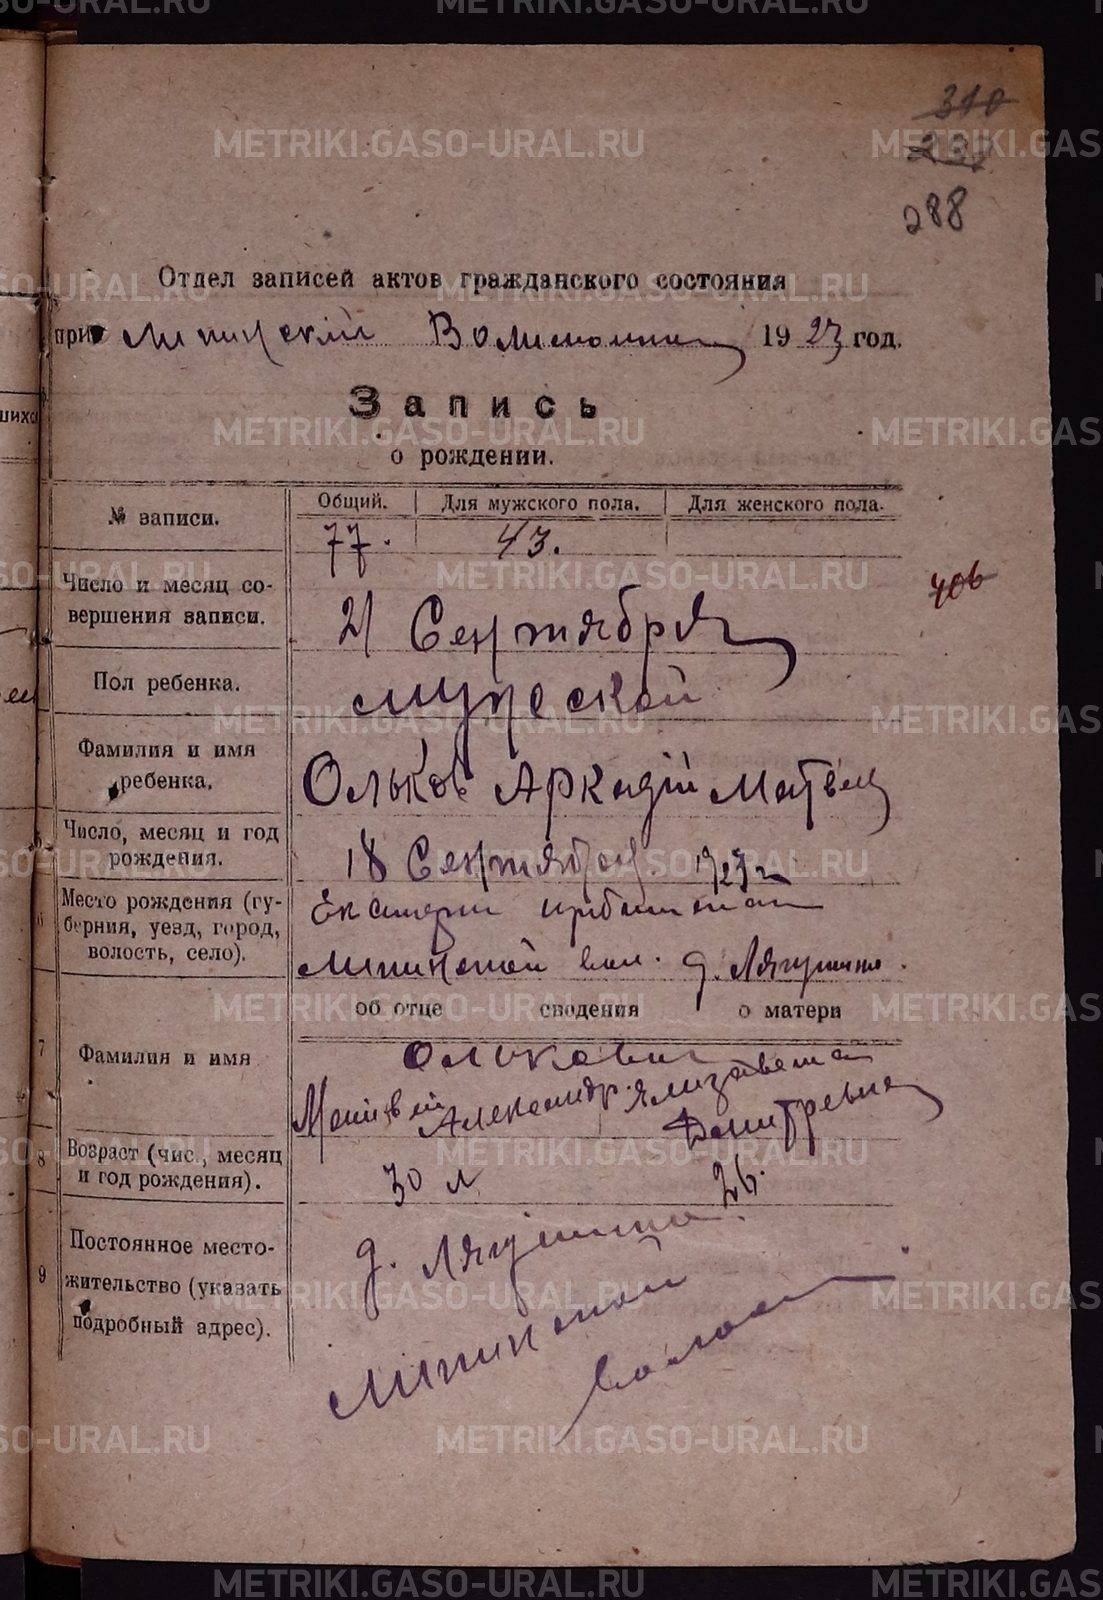 310
237
288
Отдел записей актов гражданского состояния
при Липинский Волисполком 1923 год.
Запись
о рождении.
№ записи.
Общий. Для мужского пола. Для женского пола.
77. 43.
Число и месяц со-
вершения записи.
21 Сентября
406
Пол ребенка.
мужской
Фамилия и имя
ребенка.
Ольков Аркадій Матвеев
5 Число, месяц и год
рождения.
18 Сентября 1923 г
6 Место рождения (гу-
берния, уезд, город,
волость, село).
Екатерин ирбитскаго
Липинской вол. д. Лягушина.
об отце сведения о матери
7 Фамилия и имя
Ольковы
Матвей Александр. Ялизавета
Дмитревна
8 Возраст (чис., месяц
и год рождения).
30 л 26.
9 Постоянное место-
жительство (указать
подробный адрес).
д. Лягушина.
Липинской
волости
METRIKI.GASO-URAL.RU